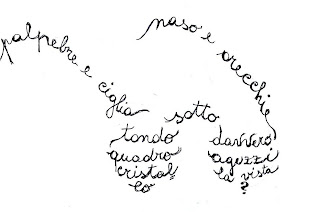 palpebre e ciglia
naso e orecchie
sotto
tondo
quadro
cristal
lo
davvero
aguzzi
la vista
?